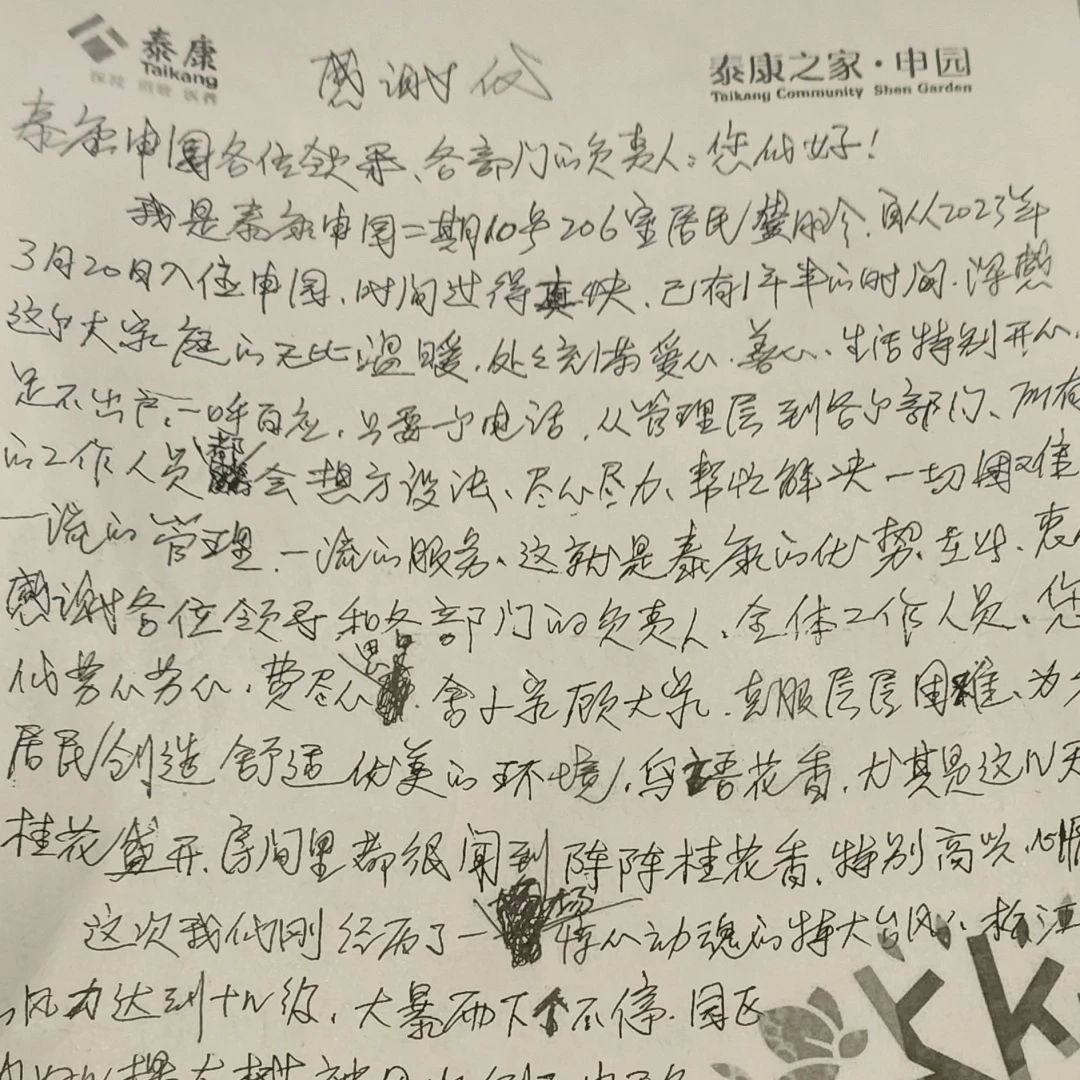 泰康
Taikang
泰康之家·申园
Taikang Community Shen Garden
感谢信
泰康申园各位领导、各部门的负责人：您们好！
我是泰康申园二期10号206室居民，自从2023年
3月20日入住申园，时间过得真快，已有1年半的时间.深感
这个大家庭的无比温暖，处处充满爱心、善心、生活特别开心，
足不出户，一呼百应，只要一个电话，从管理层到各个部门、所有
的工作人员都会想方设法、尽心尽力、帮忙解决一切困难
一流的管理，一流的服务、这就是泰康的优势.在此、衷心
感谢各位领导和各部门的负责人、全体工作人员、您
们劳心劳心，费尽心思，舍小家顾大家，克服层层困难、为
居民创造舒适优美的环境，鸟语花香，尤其是这几天
桂花盛开，房间里都很闻到阵阵桂花香，特别高兴，心情
这次我们刚经历了一场惊心动魂的特大台风、松江
风力达到十几级，大暴雨下个不停.园区
棵大树被